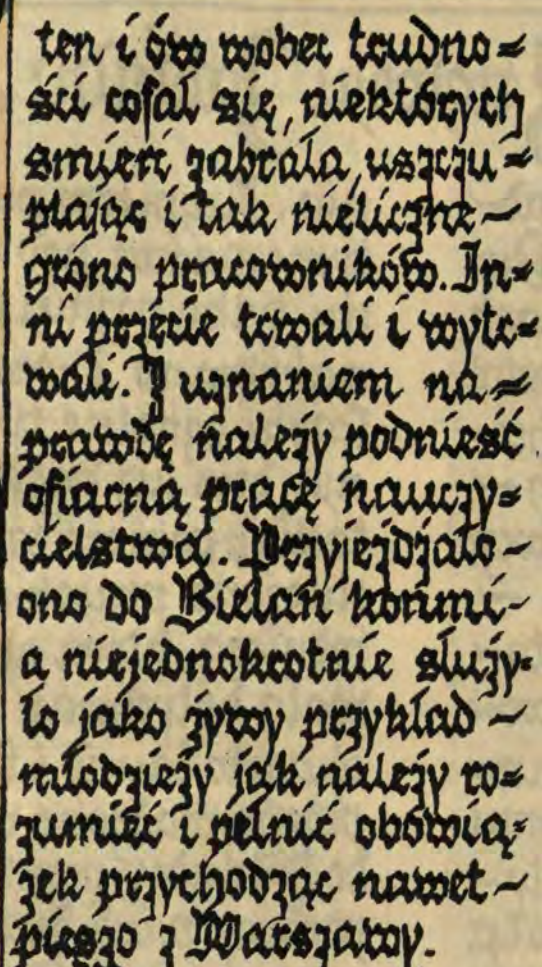 ten i ów wobec trudno=
ści cofał się, niektórych
śmierć zabrała, uszczu=
plając i tak nieliczne -
grono pracowników. In=
ni przecie trwali i wytr=
wali. Z uznaniem na=
prawdę należy podnieść
ofiarną pracę nauczy=
cielstwa. Przyjeżdżało -
ono do Bielan końmi -
a niejednokrotnie służy=
ło jako żywy przykład -
młodzieży jak należy ro=
zumieć i pełnić obowią=
zek przychodząc nawet -
pieszo z Warszawy.